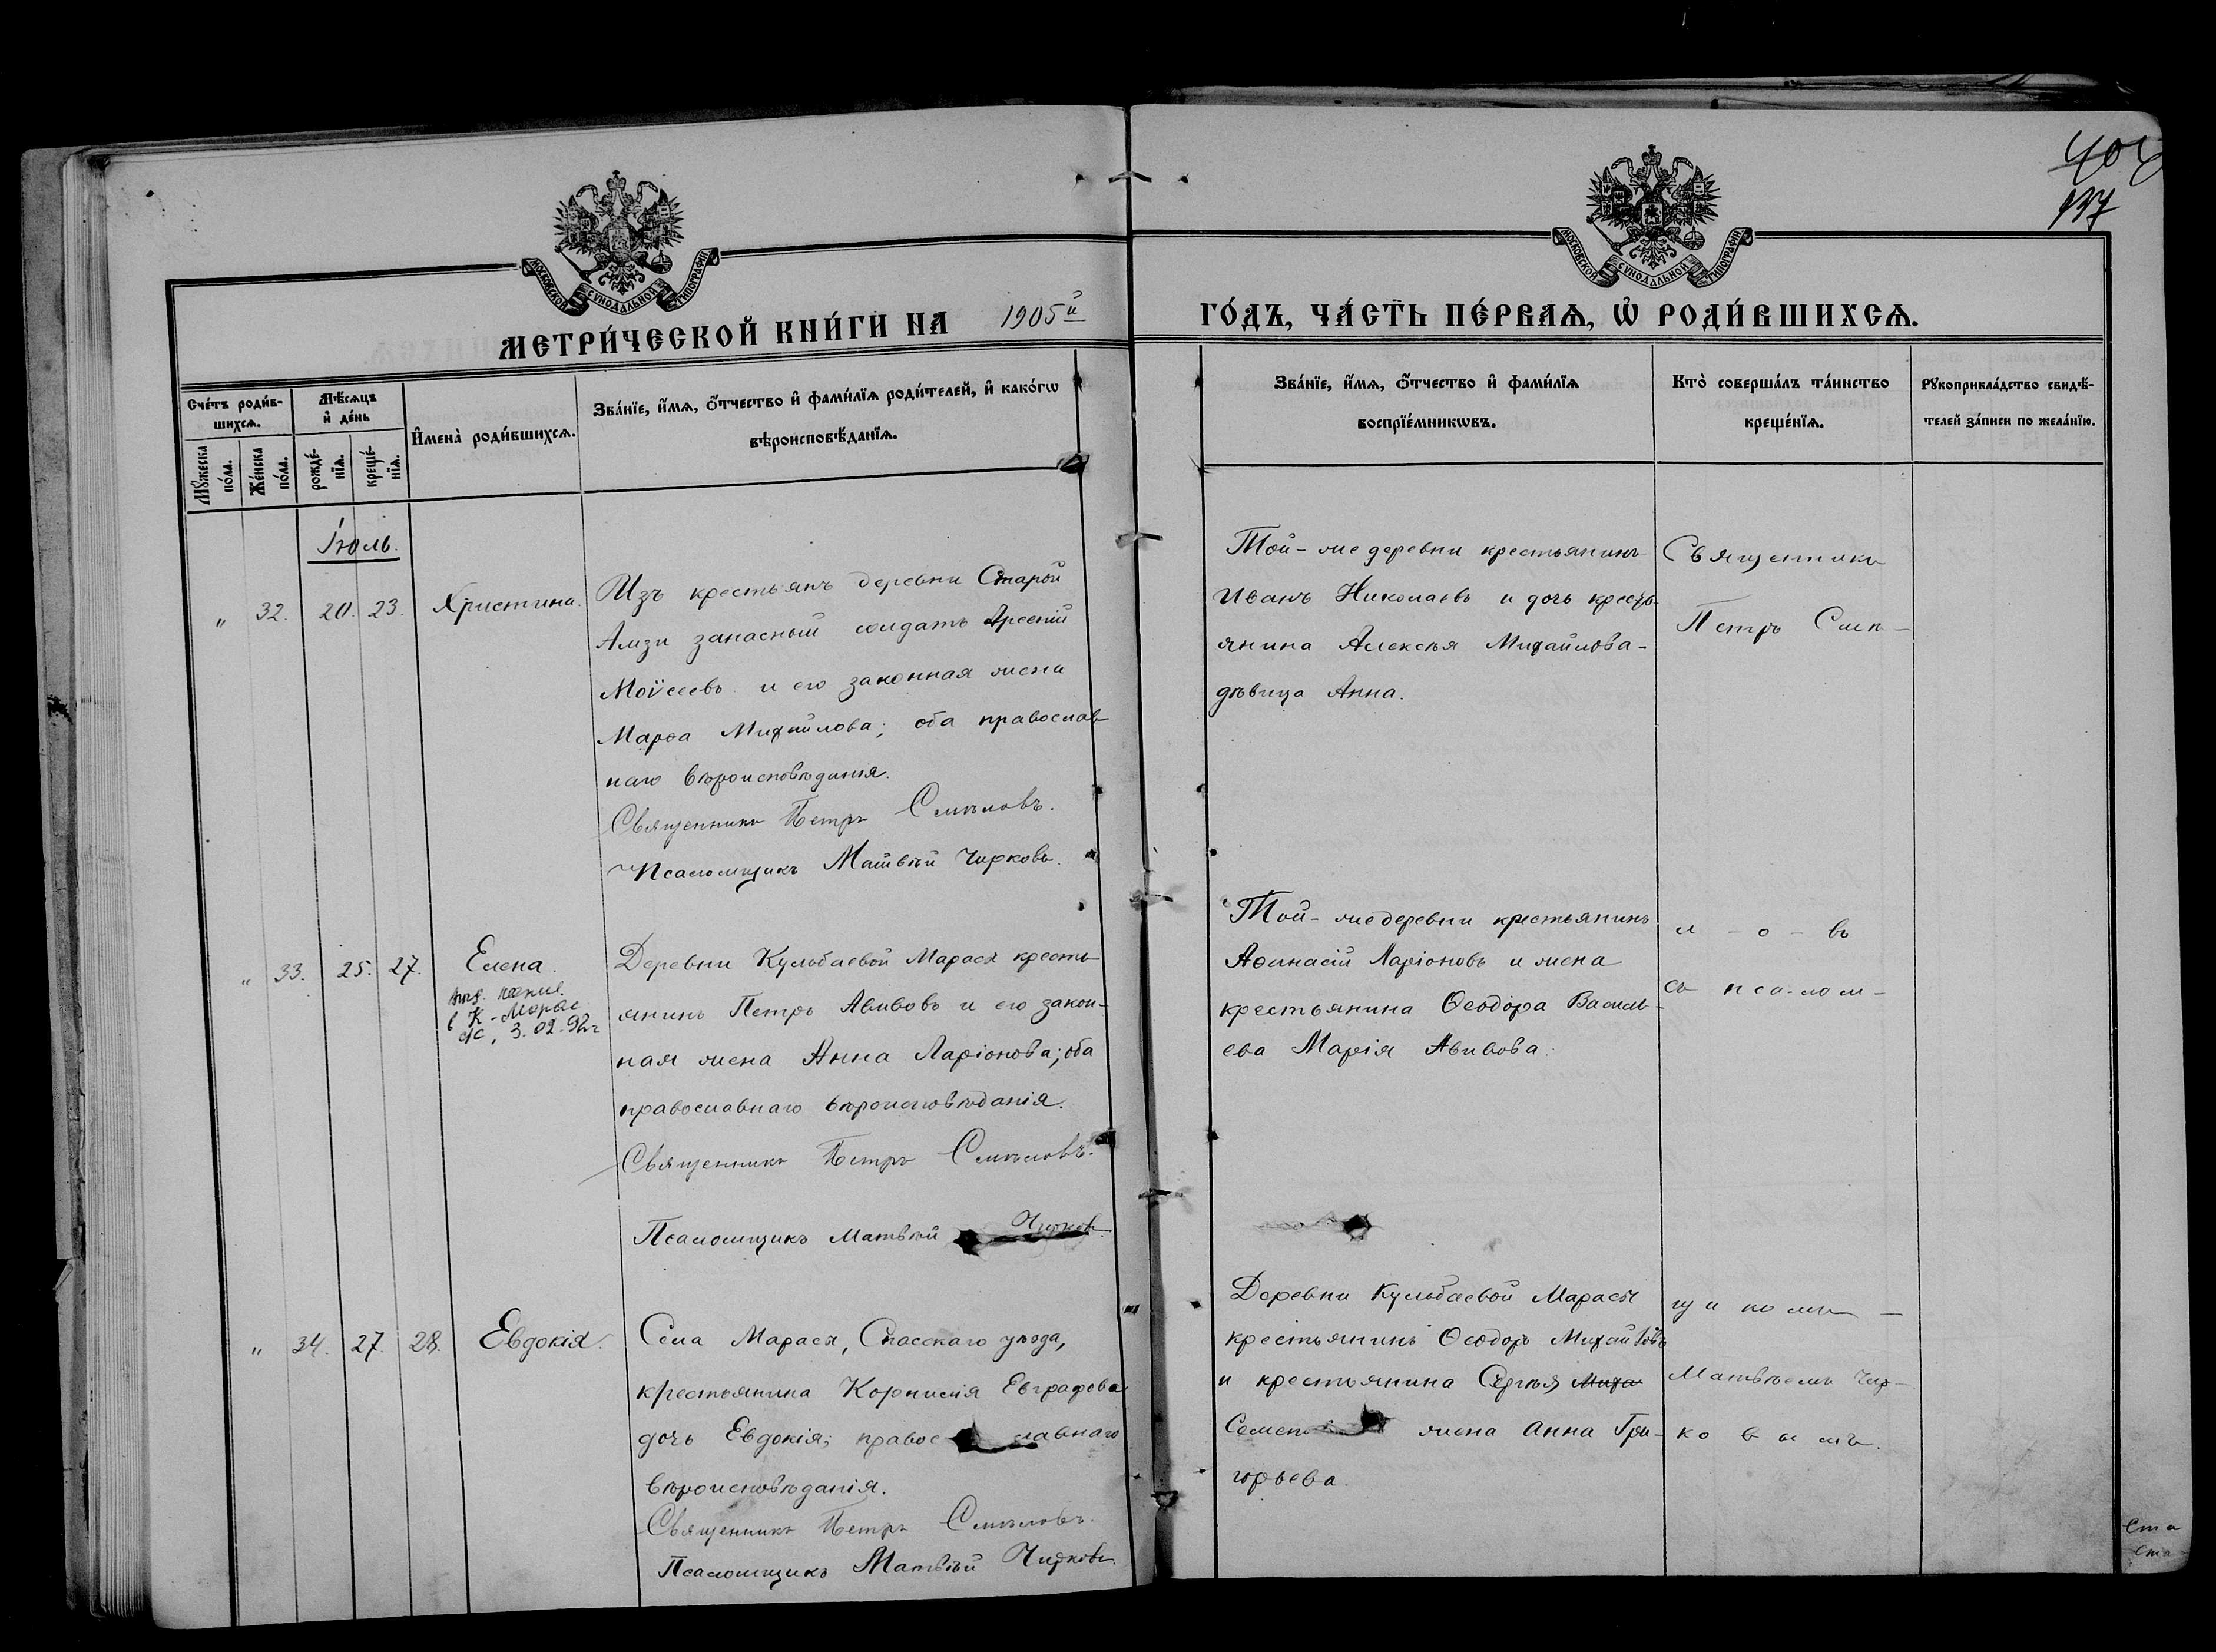 408
137
МОСКОВСКОЙ СУНОДАЛЬНОЙ ТИПОГРАФІИ
МОСКОВСКОЙ СУНОДАЛЬНОЙ ТИПОГРАФІИ
МЕТРИ́ЧЕСКОЙ КНИ́ГИ НА 1905й
ГО́ДЪ, ЧА́СТЬ ПЕ́РВАѦ, Ѡ РОДИ́ВШИХСѦ.
Сче́тъ роди́в-
шихсѧ.
Мꙋ́жеска по́ла.
Же́нска по́ла.
Мѣ́сѧцъ
и҆ де́нь
рожде́-
нїѧ.
креще́-
нїѧ.
И҆мена̀ роди́вшихсѧ.
Зва́нїе, и҆́мѧ, ѻ҆́тчество и҆ фами́лїѧ роди́телей, и҆ како́гѡ
вѣроисповѣ́данїѧ.
Зва́нїе, и҆́мѧ, ѻ҆́тчество и҆ фами́лїѧ
воспрїе́мникѡвъ.
Кто̀ соверша́лъ та́инство
креще́нїѧ.
Рꙋкоприкла́дство свидѣ́-
телей за́писи по жела́нїю.
Іюль.
" 32. 20. 23. Христина.
Изъ крестьянъ деревни Старой
Амзи запасный солдатъ Арсеній
Моѵсеевъ и его законная жена
Марѳа Михайлова; оба православ-
наго вѣроисповѣданія.
Священникъ Петръ Смѣловъ.
Псаломщикъ Матвѣй Чирковъ.
Той-же деревни крестьянинъ
Иванъ Николаевъ и дочь кресть-
янина Алексѣя Михайлова-
дѣвица Анна.
Священникъ
Петръ Смѣ-
" 33. 25. 27. Елена.
в К-Марас
с/с, 3.02.92г
Деревни Кульбаевой Марасы кресть-
янинъ Петръ Авивовъ и его закон-
ная жена Анна Ларіонова; оба
православнаго вѣроисповѣданія.
Священникъ Петръ Смѣловъ.
Псаломщикъ Матвѣй Чирковъ
Той-же деревни крестьянинъ
Аѳанасій Ларіоновъ и жена
крестьянина Ѳеодора Василь-
ева Марія Авивова.
л - о - въ
съ псалом-
" 34. 27. 28. Евдокія.
Села Марасы, Спасскаго уѣзда,
крестьянина Корнилія Евграфова
дочь Евдокія; православнаго
вѣроисповѣданія.
Священникъ Петръ Смѣловъ.
Псаломщикъ Матвѣй Чирковъ.
Деревни Кульбаевой Марасы
крестьянинъ Ѳеодоръ Михайловъ
и крестьянина Сергѣя Миха
Семен жена Анна Гри-
горьева.
щикомъ -
Матвѣемъ Чир-
ковымъ.
Ста
Ста